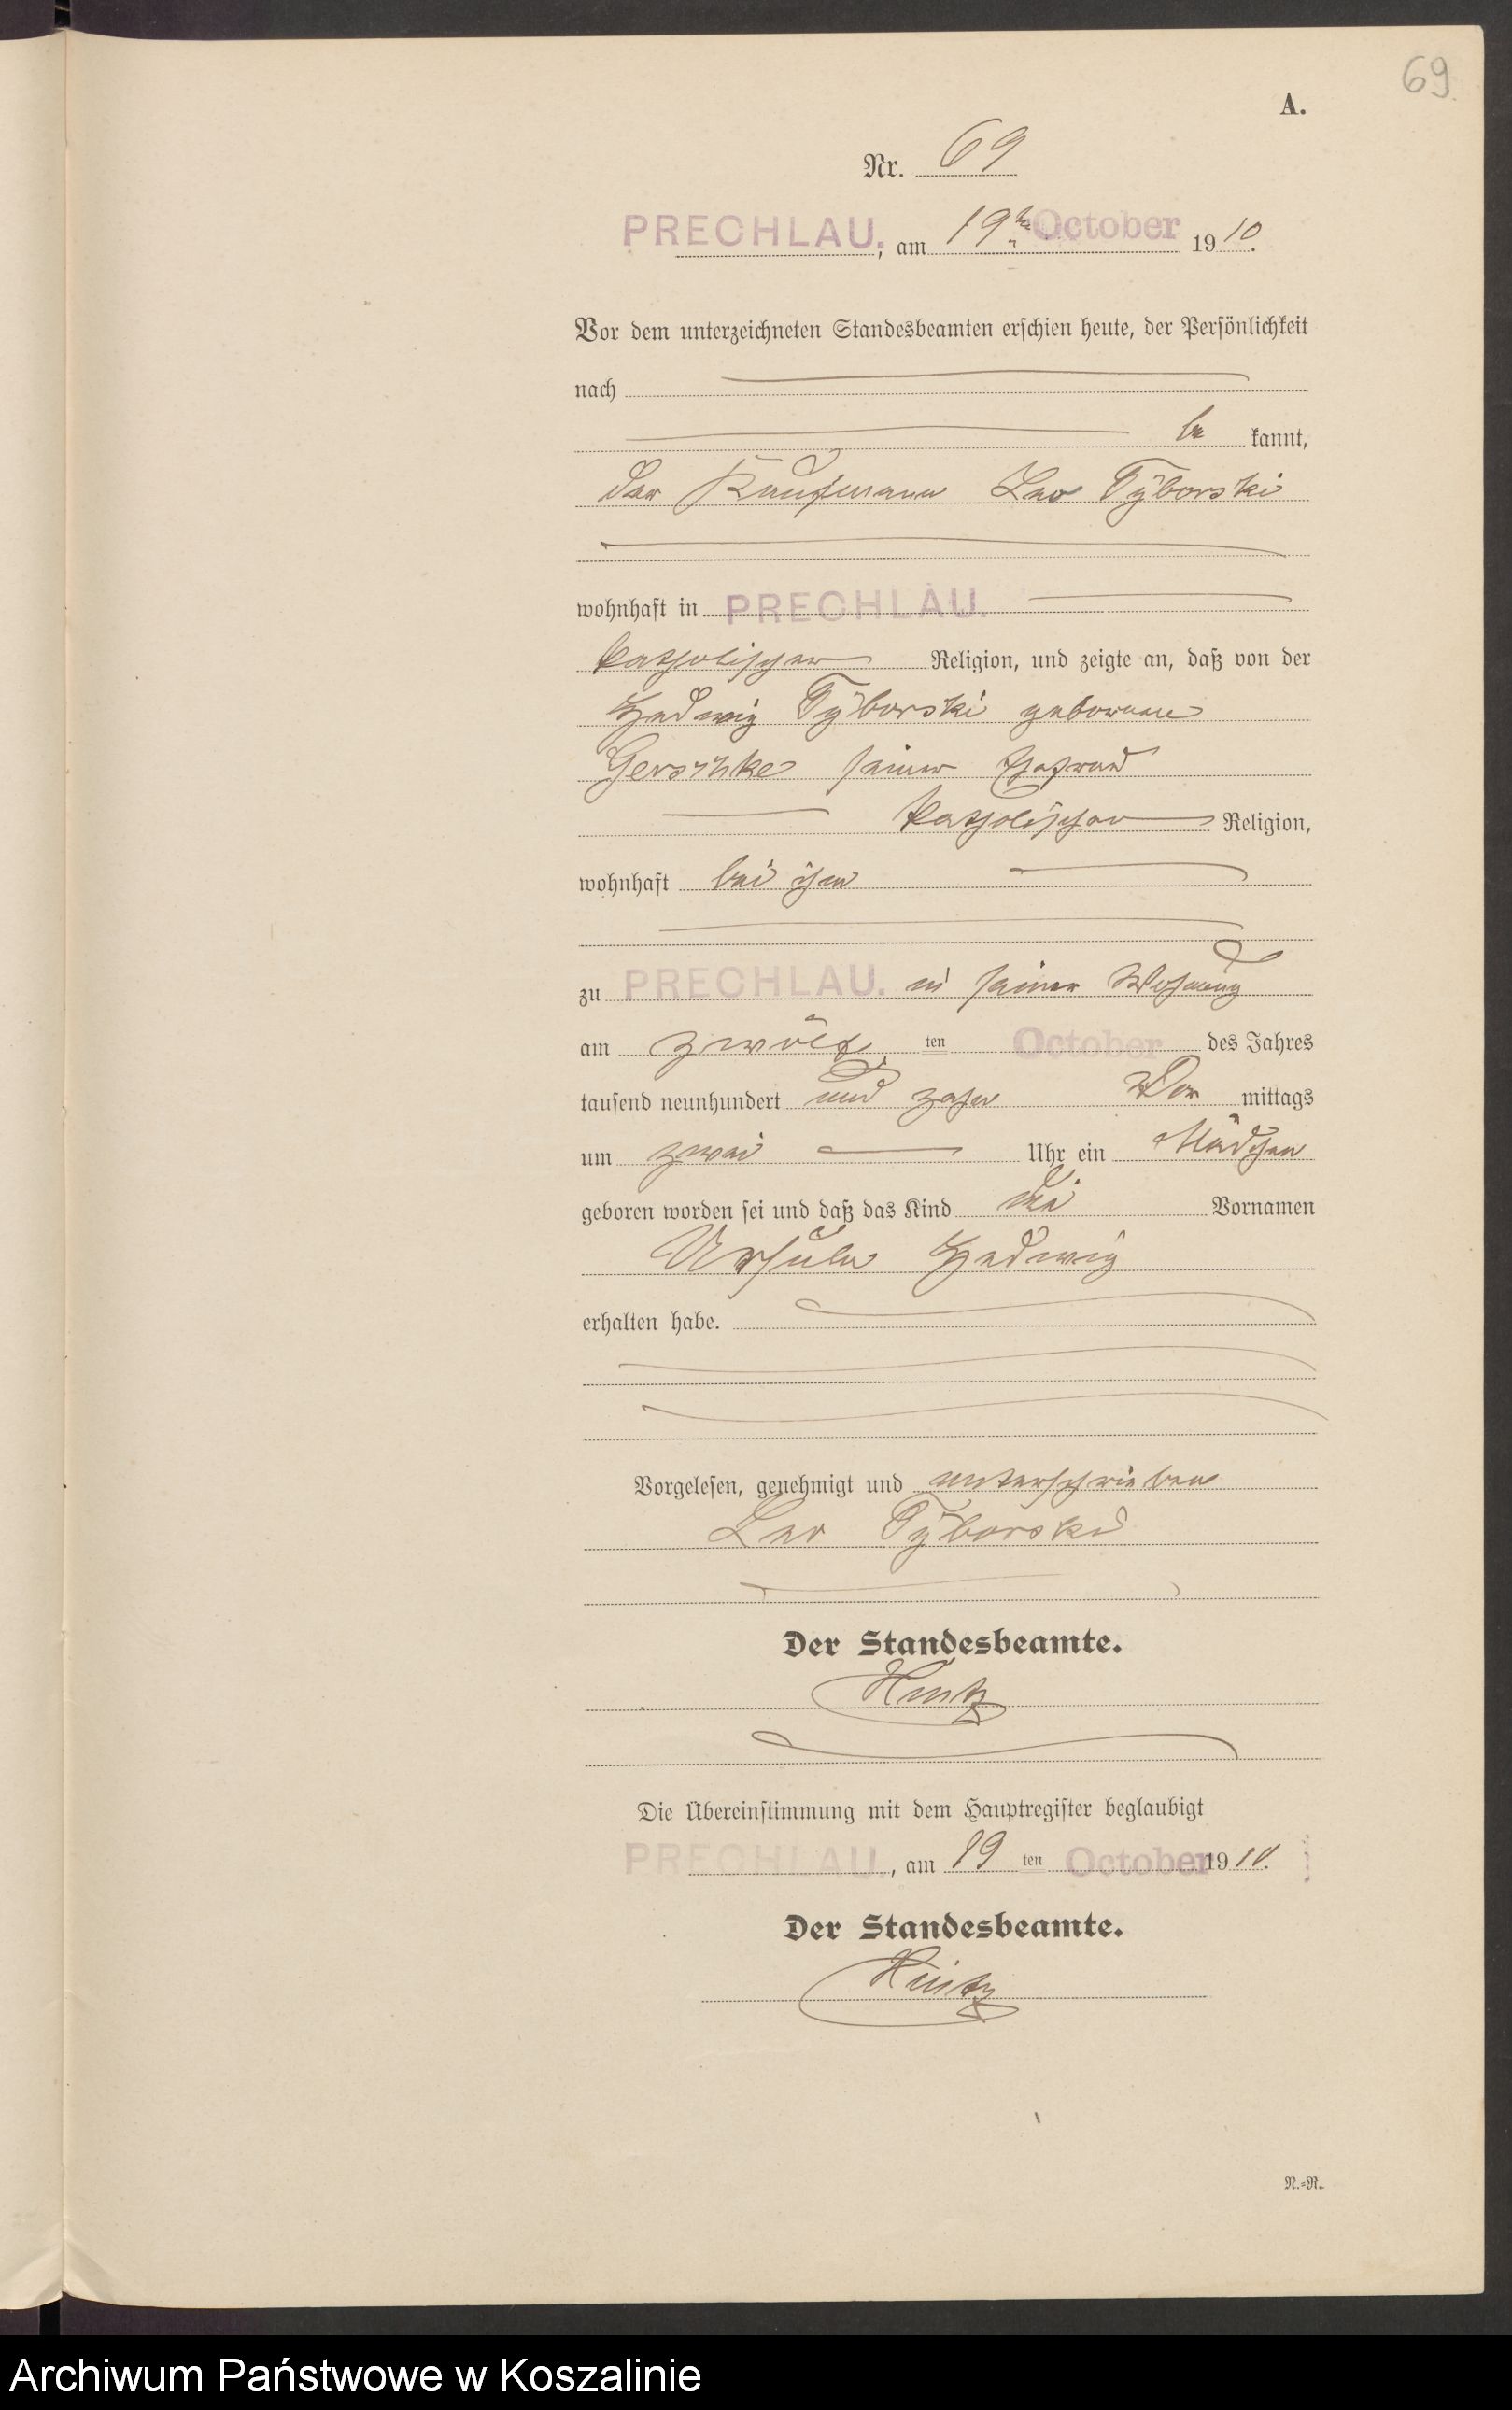 69
A.
Nr. 69
PRECHLAU, am 19ten October 1910.
Vor dem unterzeichneten Standesbeamten erschien heute, der Persönlichkeit
nach
be kannt,
der Kaufmann Leo Tyborski
wohnhaft in PRECHLAU.
katholischer Religion, und zeigte an, daß von der
Hedwig Tyborski geborene
Gerschke seiner Ehefrau
katholischer Religion,
wohnhaft bei ihm
zu PRECHLAU. in seiner Wohnung
am zwölf ten October des Jahres
tausend neunhundert und zehn Vor mittags
um zwei Uhr ein Mädchen
geboren worden sei und daß das Kind die Vornamen
Ursula Hedwig
erhalten habe.
Vorgelesen, genehmigt und unterschrieben
Leo Tyborski
Der Standesbeamte.
Hintz
Die Übereinstimmung mit dem Hauptregister beglaubigt
PRECHLAU., am 19 ten October 1910.
Der Standesbeamte.
Hintz
N.=R.
Archiwum Państwowe w Koszalinie